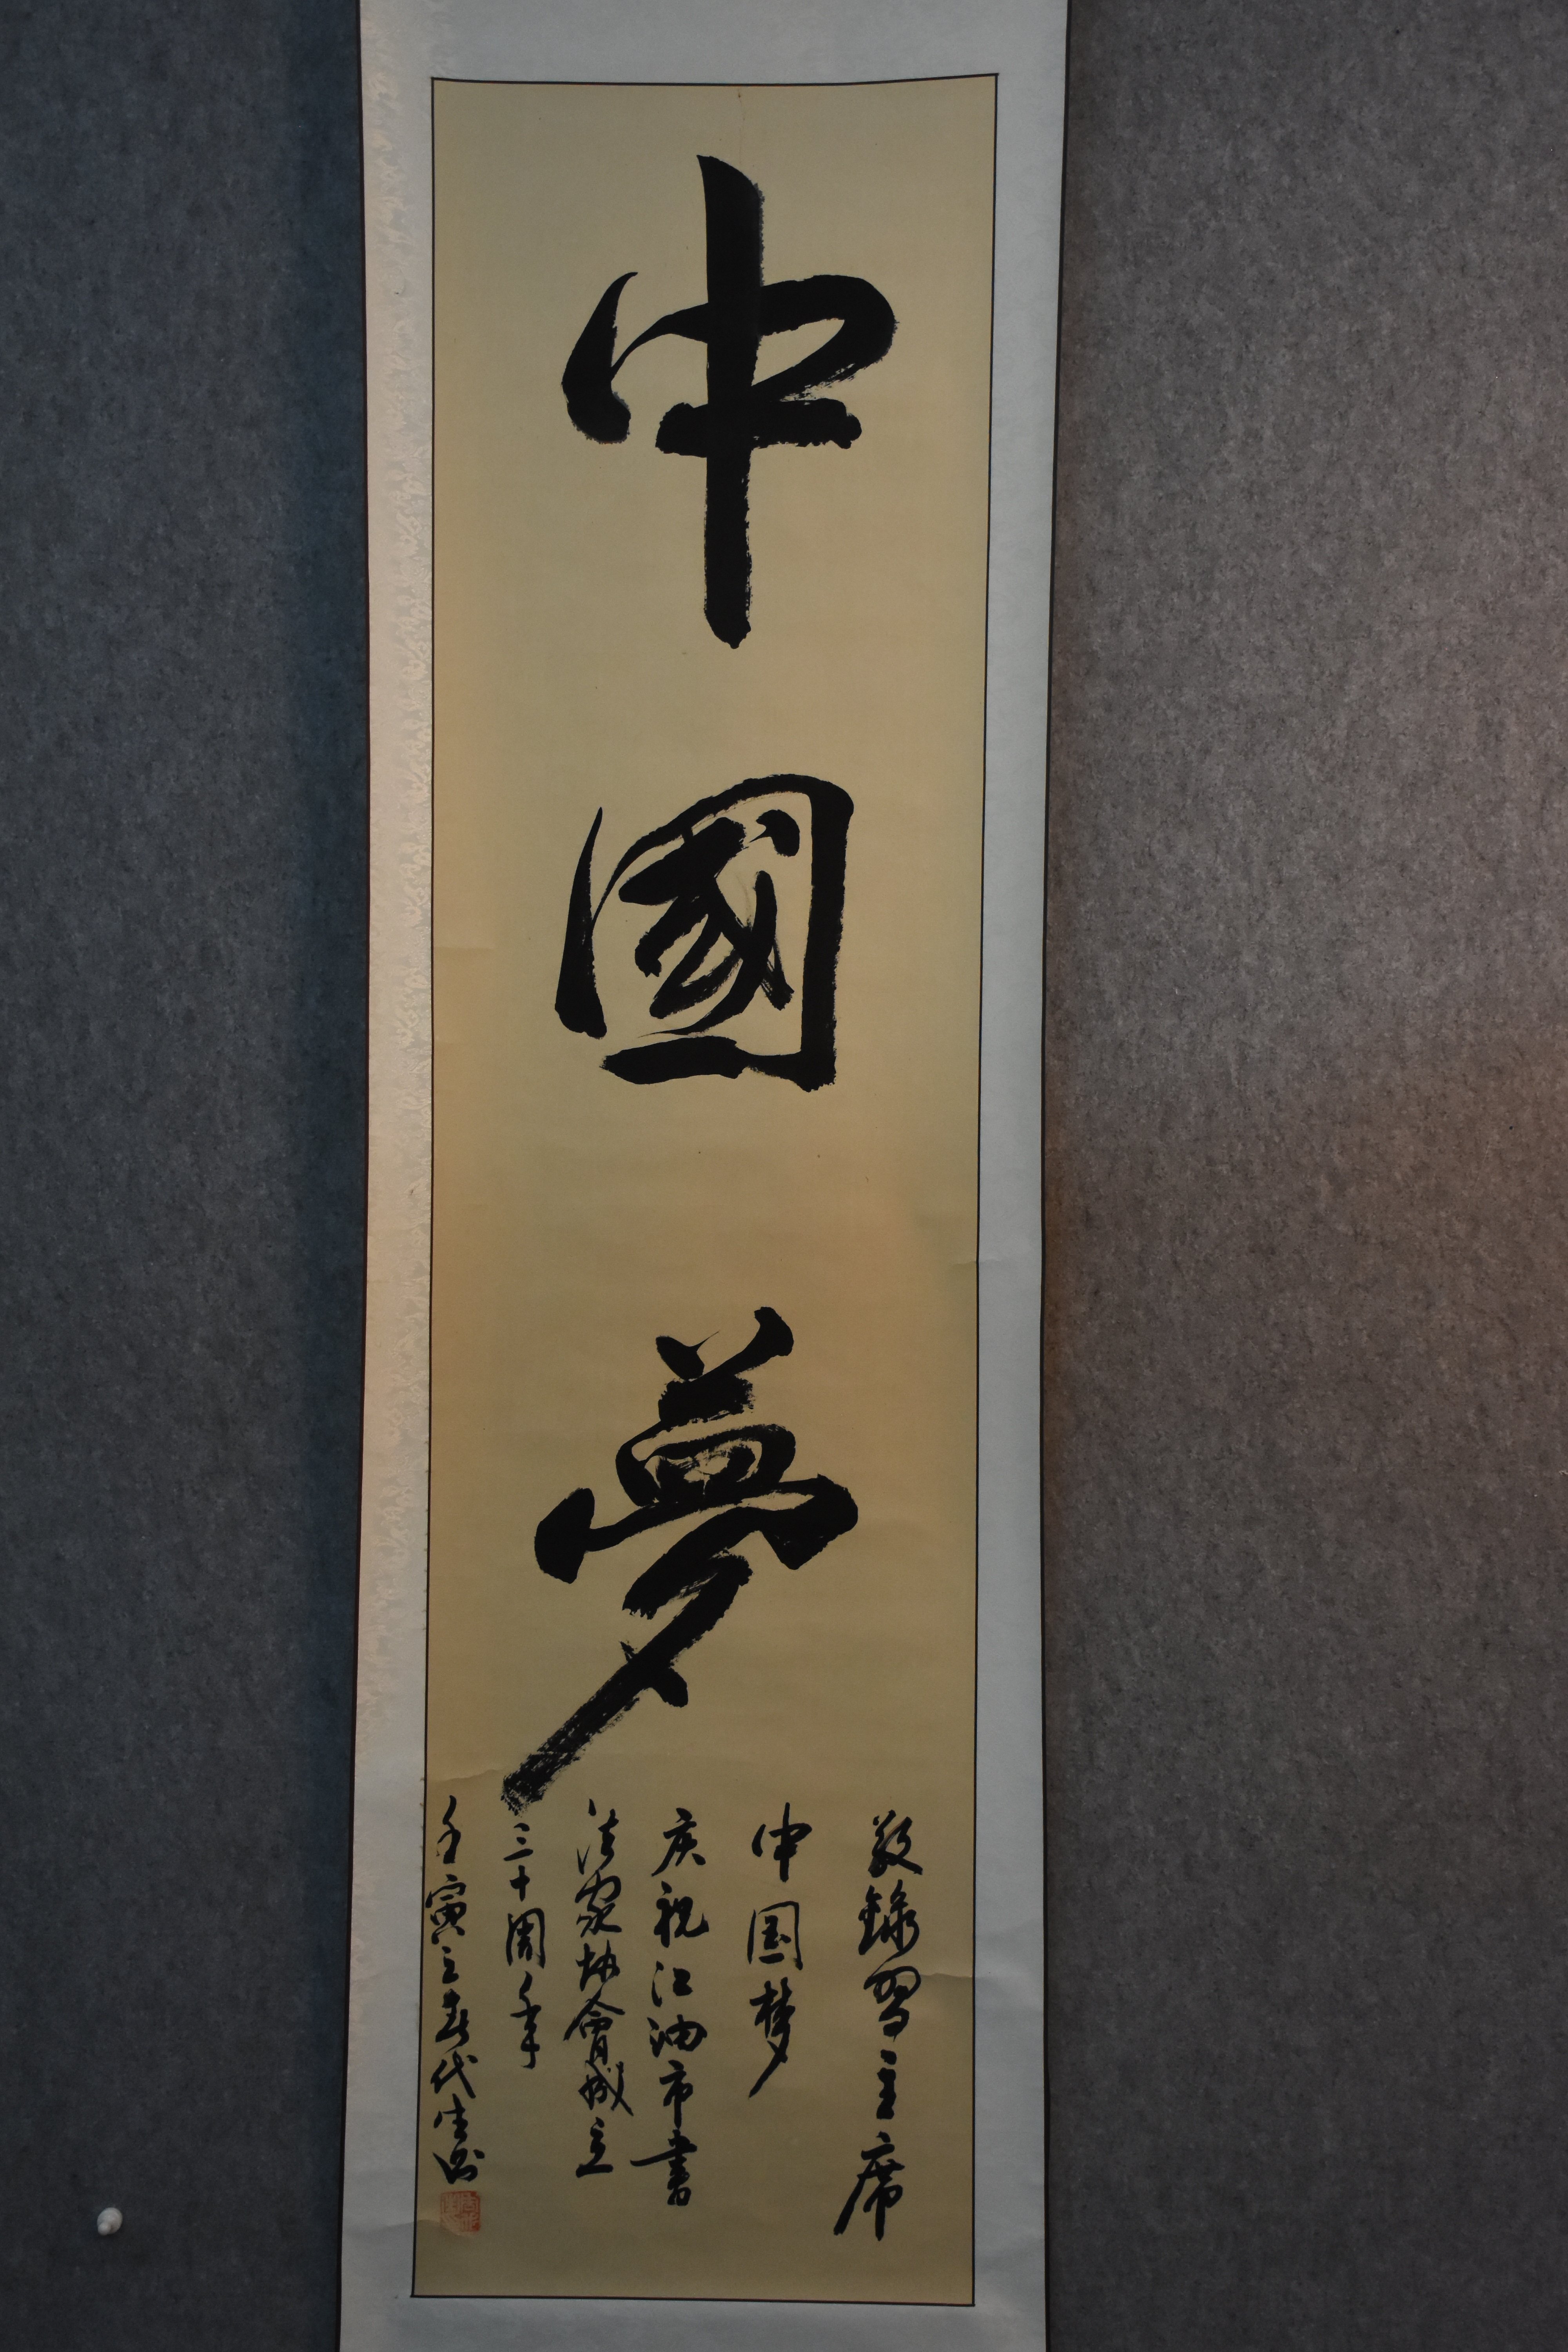 中國夢
敬錄習主席
中国梦
庆祝江油市書
法家协會成立
三十周年
壬寅立春代生